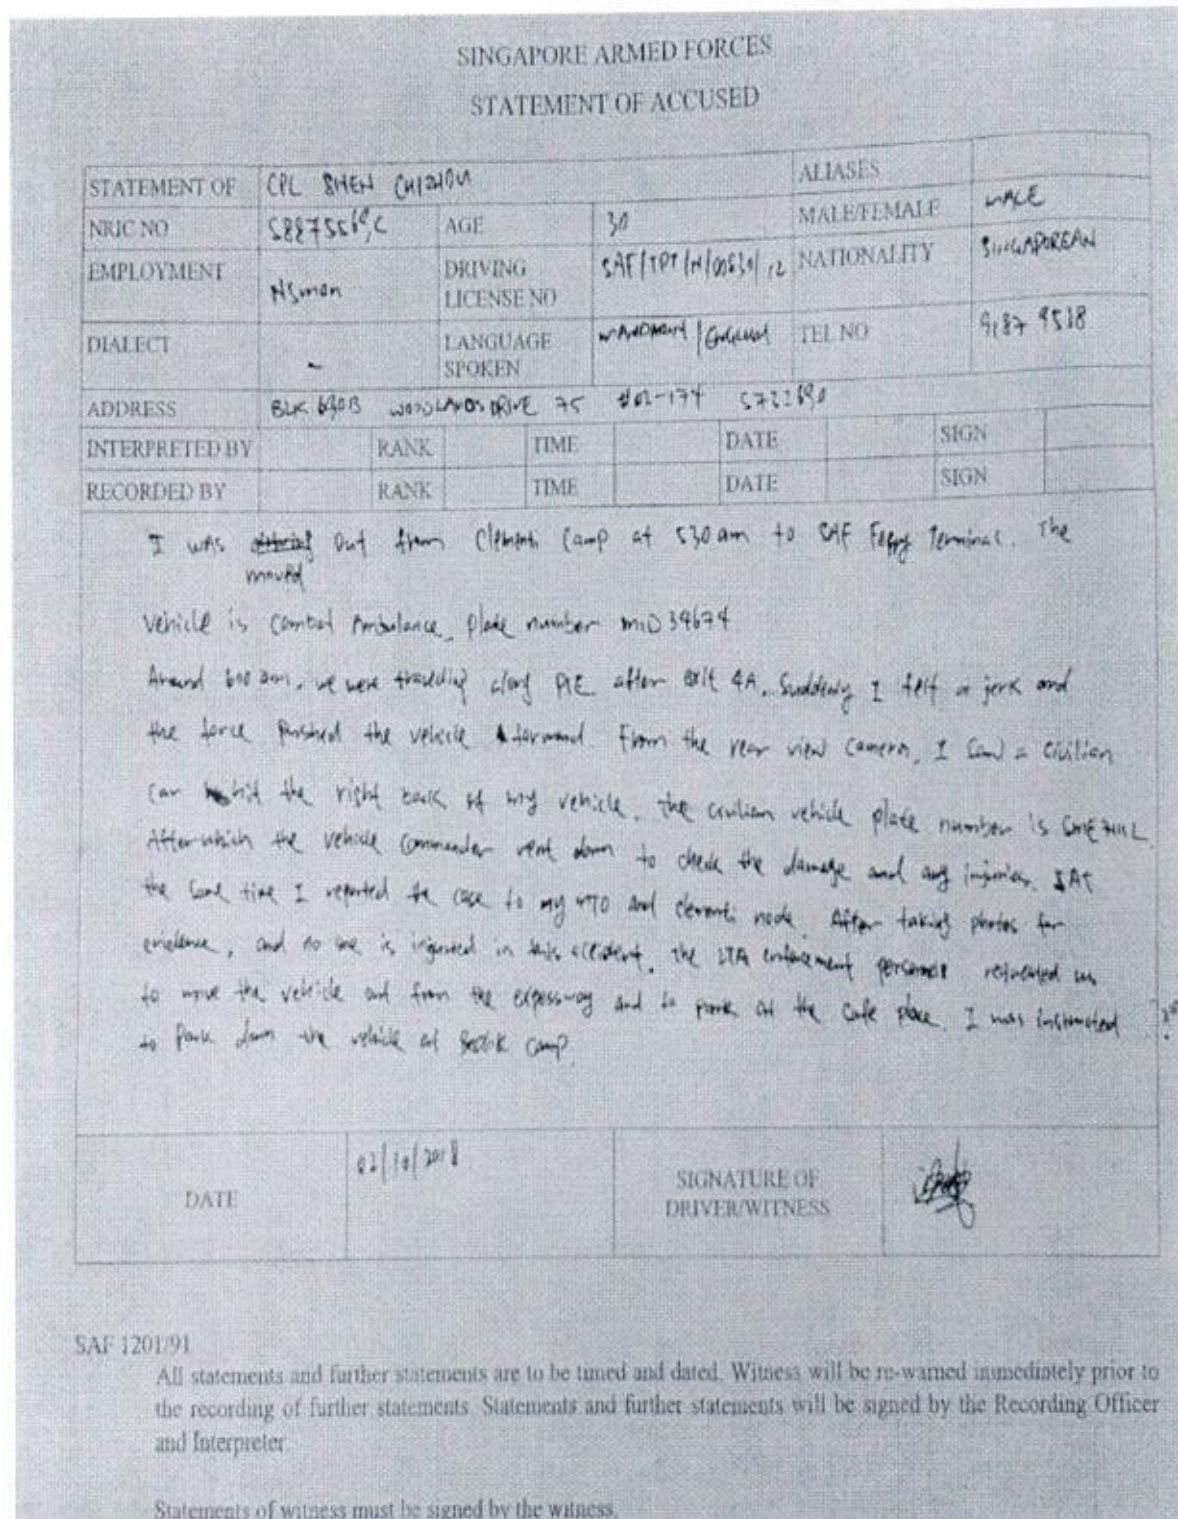 SINGAPORE ARMED FORCES
STATEMENT OF ACCUSED
STATEMENT OF CPL SHEN ALIASES
NRIC NO AGE 30 MALE/FEMALE MALE
EMPLOYMENT NSman DRIVING LICENSE NO NATIONALITY SINGAPOREAN
DIALECT - LANGUAGE SPOKEN MANDARIN / English TEL NO 9187 9518
ADDRESS BLK 690B WOODLANDS DRIVE 75 #02-174 S732690
INTERPRETED BY RANK TIME DATE SIGN
RECORDED BY RANK TIME DATE SIGN
I was out from Clementi Camp at 530 am to SAF Ferry Terminal. The
moved
vehicle is Combat Ambulance, plate number MID 34674
Around 600 am, we were travelling along PIE after exit 4A. Suddenly I felt a jerk and
the force pushed the vehicle forward. From the rear view camera, I saw a civilian
car hit the right back of my vehicle. the civilian vehicle plate number is
After which the vehicle commander went down to check the damage and any injuries. At
the same time I reported the case to my MTO and clementi node. After taking photos for
evidence, and no one is injured in this accident. the LTA enforcement personnel requested us
to move the vehicle out from the expessway and to park at the safe place. I was instructed
to park down the vehicle at Bedok Camp.
DATE 02/10/2018 SIGNATURE OF DRIVER/WITNESS
SAF 1201/91
All statements and further statements are to be timed and dated. Witness will be re-warned immediately prior to
the recording of further statements. Statements and further statements will be signed by the Recording Officer
and Interpreter
Statements of witness must be signed by the witness.